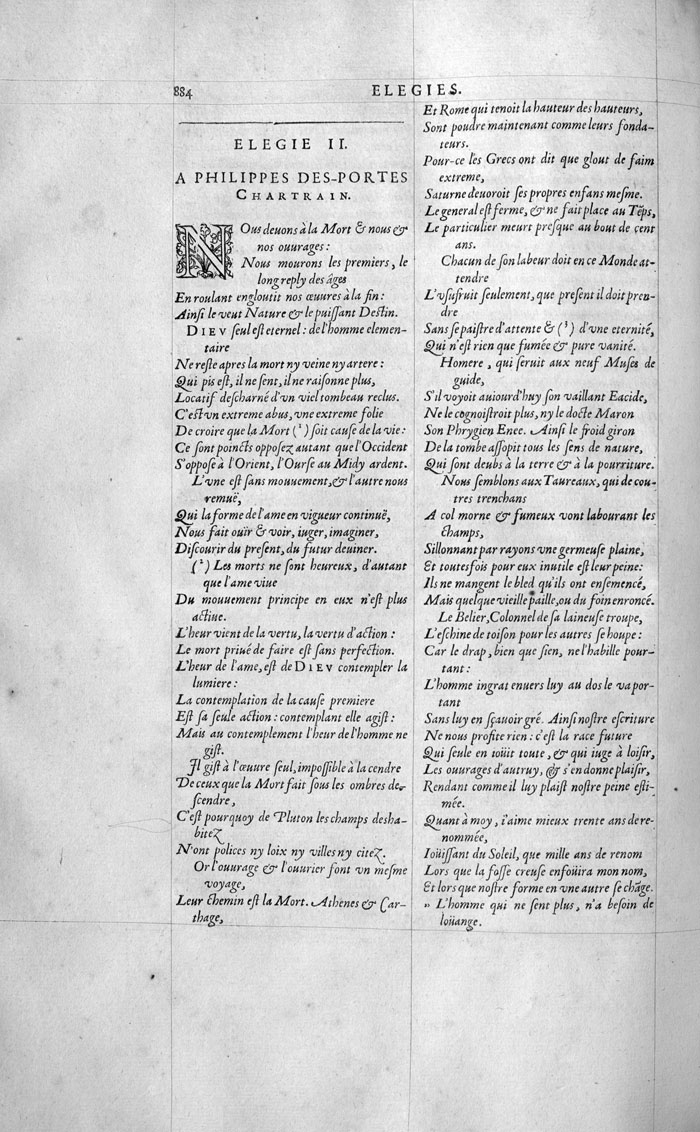 884
ELEGIES.
ELEGIE II.
A PHILIPPES DES-PORTES
CHARTRAIN.
NOus deuons à la Mort & nous &
nos ouurages:
Nous mourons les premiers, le
long reply des âges
En roulant engloutit nos œuures à la fin:
Ainsi le veut Nature & le puissant Destin.
DIEV seul est eternel: de l'homme elemen-
taire
Ne reste apres la mort ny veine ny artere:
Qui pis est, il ne sent, il ne raisonne plus,
Locatif descharné d'vn viel tombeau reclus.
C'est vn extreme abus, vne extreme folie
De croire que la Mort (¹) soit cause de la vie:
Ce sont poincts opposez autant que l'Occident
S'oppose à l'Orient, l'Ourse au Midy ardent.
L'vne est sans mouuement, & l'autre nous
remuë,
Qui la forme de l'ame en vigueur continuë,
Nous fait ouïr & voir, iuger, imaginer,
Discourir du present, du futur deuiner.
(²) Les morts ne sont heureux, d'autant
que l'ame viue
Du mouuement principe en eux n'est plus
actiue.
L'heur vient de la vertu, la vertu d'action:
Le mort priué de faire est sans perfection.
L'heur de l'ame, est de DIEV contempler la
lumiere:
La contemplation de la cause premiere
Est sa seule action: contemplant elle agist:
Mais au contemplement l'heur de l'homme ne
gist.
Il gist à l'œuure seul, impossible à la cendre
De ceux que la Mort fait sous les ombres de-
scendre,
C'est pourquoy de Pluton les champs desha-
bitez
N'ont polices ny loix ny villes ny citez.
Or l'ouurage & l'ouurier font vn mesme
voyage,
Leur chemin est la Mort. Athenes & Car-
thage,
Et Rome qui tenoit la hauteur des hauteurs,
Sont poudre maintenant comme leurs fonda-
teurs.
Pour-ce les Grecs ont dit que glout de faim
extreme,
Saturne deuoroit ses propres enfans mesme.
Le general est ferme, & ne fait place au Tẽps,
Le particulier meurt presque au bout de cent
ans.
Chacun de son labeur doit en ce Monde at-
tendre
L'vsufruit seulement, que present il doit pren-
dre
Sans se paistre d'attente & (³) d'vne eternité,
Qui n'est rien que fumée & pure vanité.
Homere, qui seruit aux neuf Muses de
guide,
S'il voyoit auiourd'huy son vaillant Eacide,
Ne le cognoistroit plus, ny le docte Maron
Son Phrygien Enee. Ainsi le froid giron
De la tombe assopit tous les sens de nature,
Qui sont deubs à la terre & à la pourriture.
Nous semblons aux Taureaux, qui de cou-
tres trenchans
A col morne & fumeux vont labourant les
champs,
Sillonnant par rayons vne germeuse plaine,
Et toutesfois pour eux inutile est leur peine:
Ils ne mangent le bled qu'ils ont ensemencé,
Mais quelque vieille paille, ou du foin enroncé.
Le Belier, Colonnel de sa laineuse troupe,
L'eschine de toison pour les autres se houpe:
Car le drap, bien que sien, ne l'habille pour-
tant:
L'homme ingrat enuers luy au dos le va por-
tant
Sans luy en sçauoir gré. Ainsi nostre escriture
Ne nous profite rien: c'est la race future
Qui seule en iouït toute, & qui iuge à loisir,
Les ouurages d'autruy, & s'en donne plaisir,
Rendant comme il luy plaist nostre peine esti-
mée.
Quant à moy, i'aime mieux trente ans de re-
nommée,
Iouïssant du Soleil, que mille ans de renom
Lors que la fosse creuse enfouïra mon nom,
Et lors que nostre forme en vne autre se chãge.
„ L'homme qui ne sent plus, n'a besoin de
louänge.